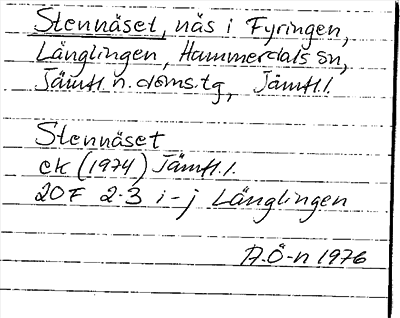 Stennäset, näs i Fyringen,
Långlingen, Hammerdals sn,
Jämtl. n. doms.tg, Jämtl. l.
Stennäset
ek (1974) Jämtl. l.
20F 2-3 i-j Långlingen
A.Ö-n 1976